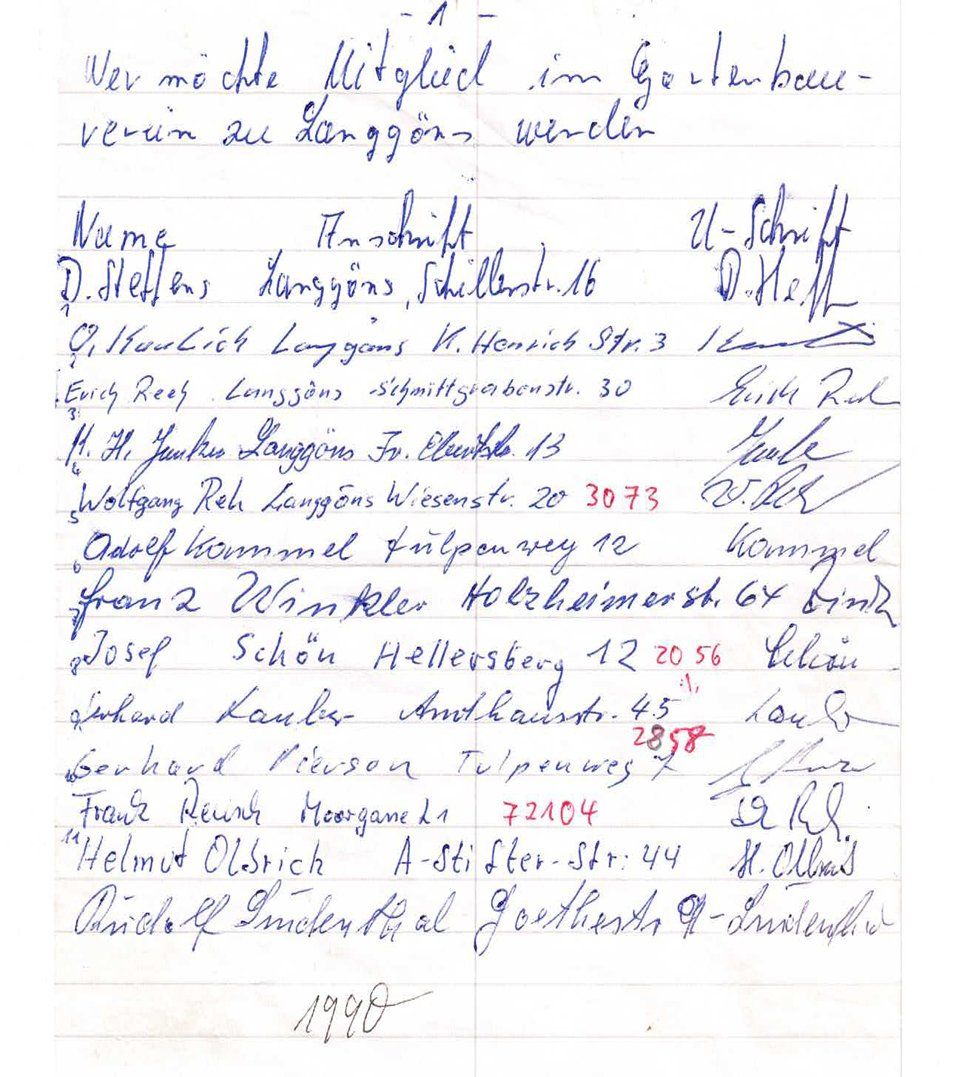 - 1 -
Wer möchte Mitglied im Gartenbau-
verein zu Langgöns werden
Name Anschrift U-Schrift
D. Steffens Langgöns, Schillerstr. 16 D. Steff
1
O. Kaulich Langgöns K. Henrich Str. 3
2
Erich Reeh Langgöns Schmittgrabenstr. 30 Erich Reeh
3
K. H. Junker Langgöns Fr. Ebertstr. 13 Junker
4
Wolfgang Reh Langgöns Wiesenstr. 20 3073 W. Reh
5
Adolf Kommel Tulpenweg 12 Kommel
6
Franz Winkler Holzheimerstr. 64
7
Josef Schön Hellersberg 12 20 56 Schön
8
Gerhard Amthausstr. 45
9
2858
Gerhard Pierson Tulpenweg 7
10
Frank Reusch 72104
11
Helmut Olbrich A-Stifter-Str: 44 H. Olbrich
Rudolf Lindenthal Goethestr 9 Lindenthal
1990